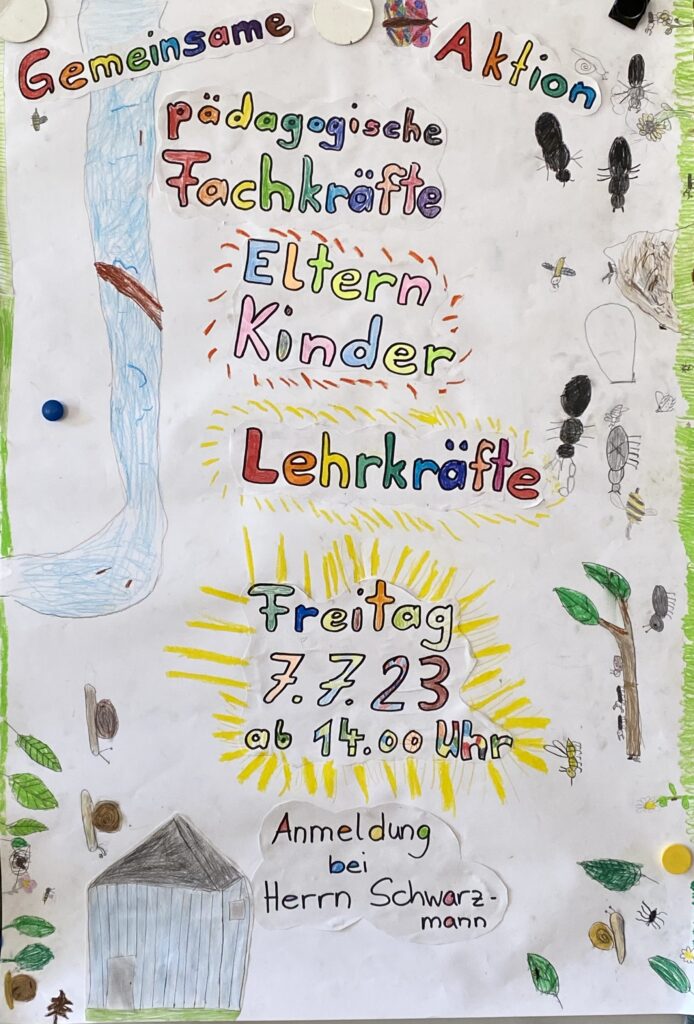 Gemeinsame Aktion
pädagogische
Fachkräfte
Eltern
Kinder
Lehrkräfte
Freitag
7.7.23
ab 14.00 Uhr
Anmeldung
bei
Herrn Schwarz-
mann